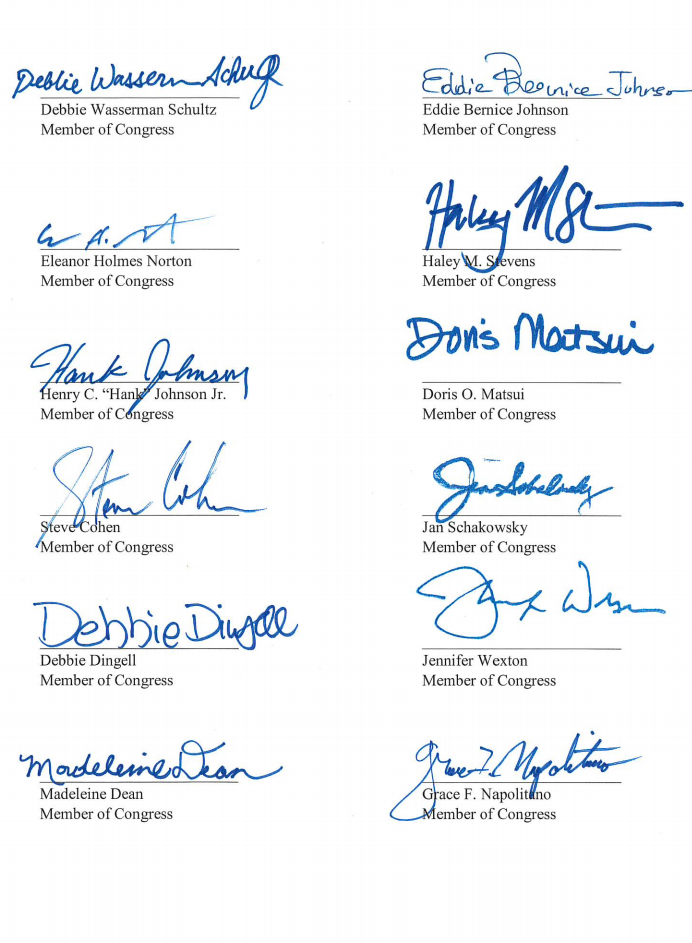 Debbie Wasserman Schultz
Member of Congress
Eddie Bernice Johnson
Eddie Bernice Johnson
Member of Congress
Eleanor Holmes Norton
Member of Congress
Haley M. Stevens
Member of Congress
Hank Johnson
Henry C. “Hank” Johnson Jr.
Member of Congress
Doris Matsui
Doris O. Matsui
Member of Congress
Steve Cohen
Steve Cohen
Member of Congress
Jan Schakowsky
Member of Congress
Debbie Dingell
Debbie Dingell
Member of Congress
Jennifer Wexton
Member of Congress
Madeleine Dean
Madeleine Dean
Member of Congress
Grace F. Napolitano
Grace F. Napolitano
Member of Congress